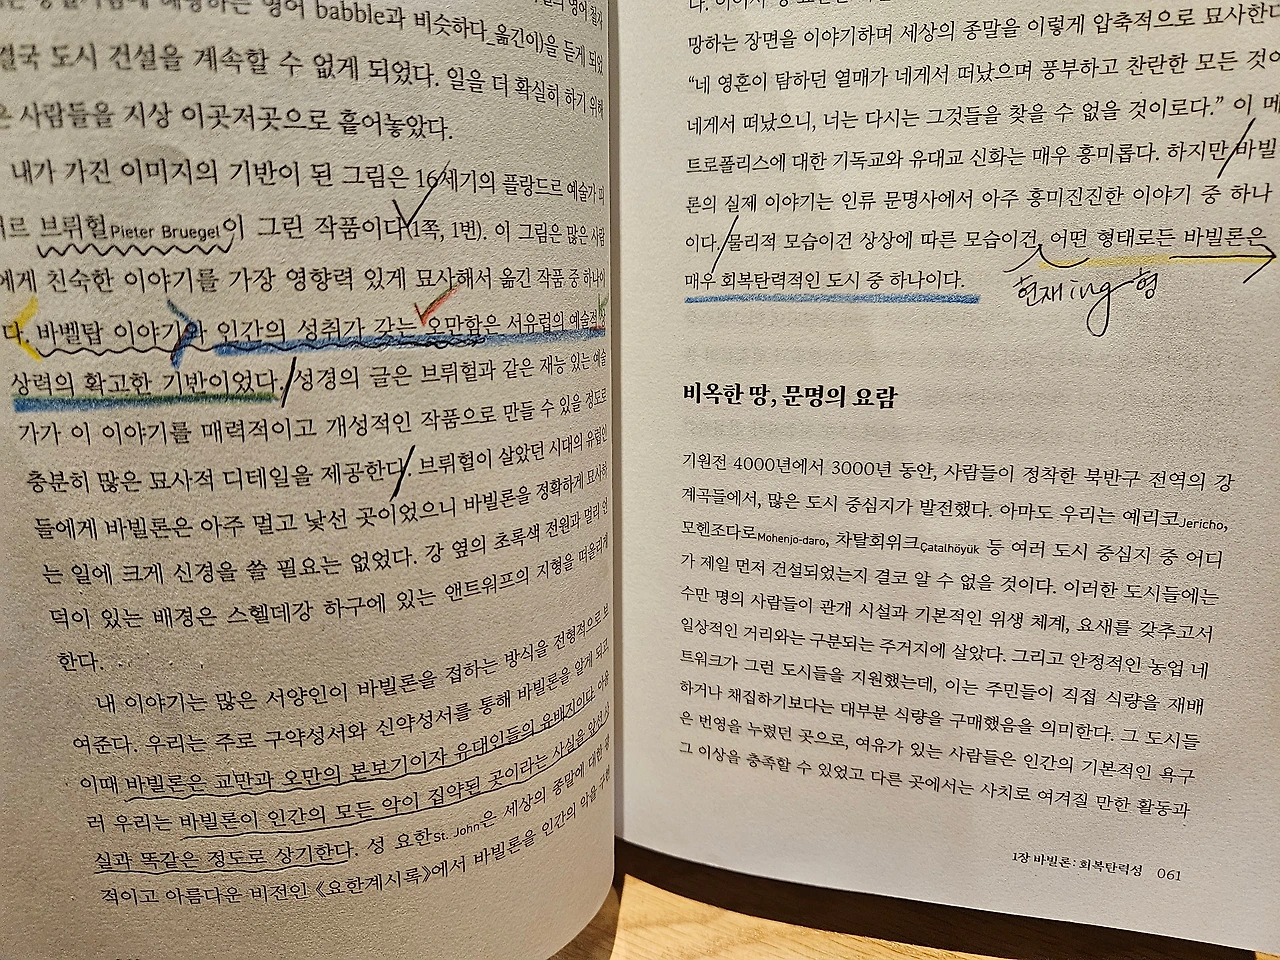 해당하는 영어 babble과 비슷하다_옮긴이)을 듣게 되었
결국 도시 건설을 계속할 수 없게 되었다. 일을 더 확실히 하기 위해
사람들을 지상 이곳저곳으로 흩어놓았다.
내가 가진 이미지의 기반이 된 그림은 16세기의 플랑드르 예술가 피
브뤼헐Pieter Bruegel이 그린 작품이다(1쪽, 1번). 이 그림은 많은 사람
에게 친숙한 이야기를 가장 영향력 있게 묘사해서 옮긴 작품 중 하나이
다. 바벨탑 이야기와 인간의 성취가 갖는 오만함은 서유럽의 예술적
상력의 확고한 기반이었다. 성경의 글은 브뤼헐과 같은 재능 있는 예술
가가 이 이야기를 매력적이고 개성적인 작품으로 만들 수 있을 정도로
충분히 많은 묘사적 디테일을 제공한다. 브뤼헐이 살았던 시대의 유럽인
들에게 바빌론은 아주 멀고 낯선 곳이었으니 바빌론을 정확하게 묘사하
는 일에 크게 신경을 쓸 필요는 없었다. 강 옆의 초록색 전원과 멀리 언
덕이 있는 배경은 스헬데강 하구에 있는 앤트워프의 지형을 떠올리게
한다.
내 이야기는 많은 서양인이 바빌론을 접하는 방식을 전형적으로 보
여준다. 우리는 주로 구약성서와 신약성서를 통해 바빌론을 알게 되고
이때 바빌론은 교만과 오만의 본보기이자 유대인들의 유배지이다. 아울
러 우리는 바빌론이 인간의 모든 악이 집약된 곳이라는 사실을
실과 똑같은 정도로 상기한다. 성 요한St. John은 세상의 종말에 대한
적이고 아름다운 비전인 《요한계시록》에서 바빌론을 인간의 악을
망하는 장면을 이야기하며 세상의 종말을 이렇게 압축적으로 묘사한다
“네 영혼이 탐하던 열매가 네게서 떠났으며 풍부하고 찬란한 모든 것이
네게서 떠났으니, 너는 다시는 그것들을 찾을 수 없을 것이로다.” 이 메
트로폴리스에 대한 기독교와 유대교 신화는 매우 흥미롭다. 하지만 바빌
론의 실제 이야기는 인류 문명사에서 아주 흥미진진한 이야기 중 하나
이다. 물리적 모습이건 상상에 따른 모습이건, 어떤 형태로든 바빌론은
매우 회복탄력적인 도시 중 하나이다.
현재ing형
비옥한 땅, 문명의 요람
기원전 4000년에서 3000년 동안, 사람들이 정착한 북반구 전역의 강
계곡들에서, 많은 도시 중심지가 발전했다. 아마도 우리는 예리코Jericho,
모헨조다로Mohenjo-daro, 차탈회위크Çatalhöyük 등 여러 도시 중심지 중 어디
가 제일 먼저 건설되었는지 결코 알 수 없을 것이다. 이러한 도시들에는
수만 명의 사람들이 관개 시설과 기본적인 위생 체계, 요새를 갖추고서
일상적인 거리와는 구분되는 주거지에 살았다. 그리고 안정적인 농업 네
트워크가 그런 도시들을 지원했는데, 이는 주민들이 직접 식량을 재배
하거나 채집하기보다는 대부분 식량을 구매했음을 의미한다. 그 도시들
은 번영을 누렸던 곳으로, 여유가 있는 사람들은 인간의 기본적인 욕구
그 이상을 충족할 수 있었고 다른 곳에서는 사치로 여겨질 만한 활동과
1장 바빌론: 회복탄력성 061